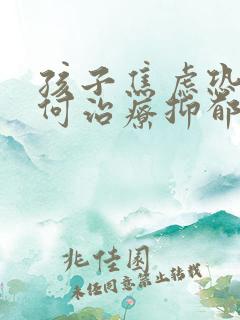 孩子焦虑恐
何治疗抑郁
兆佳国
未经同意禁止转载